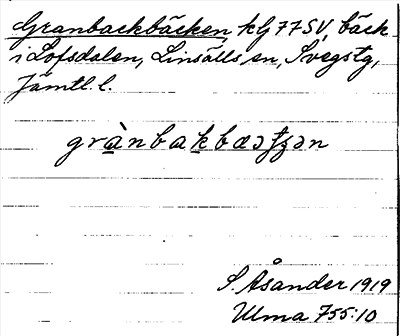 Granbackbäcken, kG 77 SV, bäck
i Lofsdalen, Linsälls sn, Svegs tg,
Jämtl. l.
grànbakbæətʂən
S. Åsander 1919
Ulma 755:10